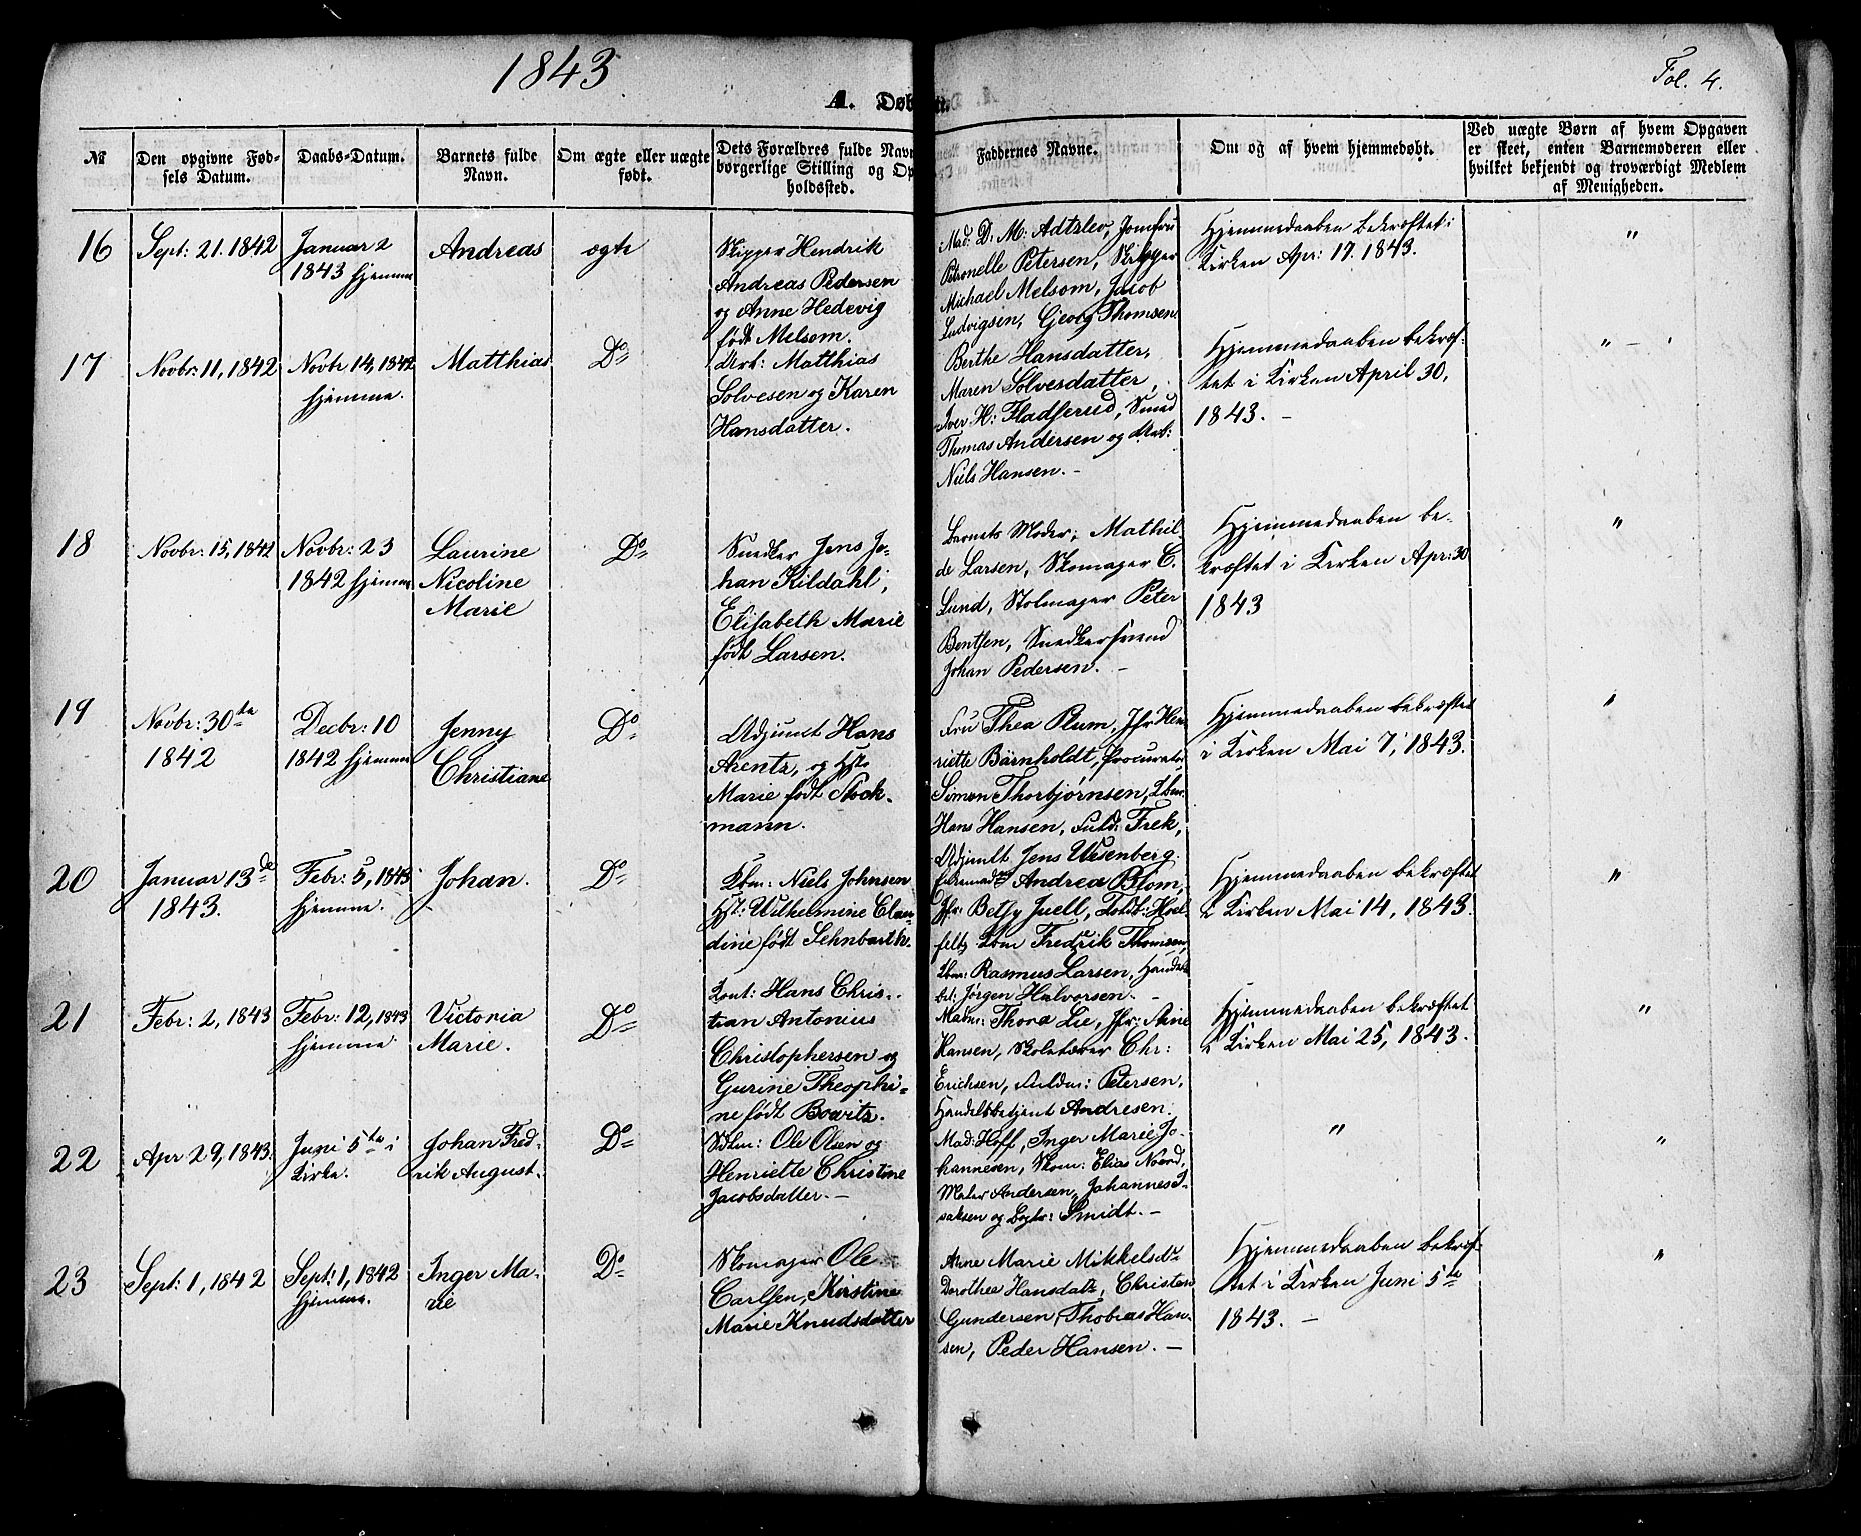 1843
Fol. 4.
A. Døbte.
№
Den opgivne Fød-
sels Datum.
Daabs-Datum.
Barnets fulde
Navn.
Om ægte eller uægte
født.
Dets Forældres fulde Navn
borgerlige Stilling og Op
holdssted.
Faddernes Navne.
Om og af hvem hjemmedøbt.
Ved uægte Børn af hvem Opgaven
er skeet, enten Barnemoderen eller
hvilket bekjendt og troværdigt Medlem
af Menigheden.
16
Sept: 21. 1842
Januar 2
1843 hjemme
Andreas
ægte
Skipper Hendrik
Andreas Pedersen
og Anne Hedevig
født Melsom.
Mad: D: M: Adtzlev, Jomfru
Petronelle Petersen, Skipper
Michael Melsom, Jacob
Ludvigsen, Gjeorg Thomsen
Hjemmedaaben bekræftet i
Kirken Apr: 17. 1843.
"
17
Novbr: 11, 1842
Novbr 14, 1842
hjemme.
Matthias
Do
Arb: Matthias
Solvesen og Karen
Hansdatter.
Berthe Hansdatter,
Maren Solvesdatter,
Iver H: Fladserud, Smed
Thomas Andersen og Mat:
Niels Hansen. -
Hjemmedaaben bekræf-
tet i Kirken April 30,
1843. -
" - "
18
Novbr: 15, 1842
Novbr: 23
1842 hjemme
Laurine
Nicoline
Marie
Do
Snedker Jens Jo-
han Kildahl,
Elisabeth Marie
født Larsen.
Barnets Moder, Mathil-
de Larsen, Skomager C.
Lund, Stolmager Peter
Bentsen, Snedkersvend
Johan Pedersen. -
Hjemmedaaben be-
kræftet i Kirken Apr: 30
1843
"
19
Novbr: 30te
1842
Decbr: 10
1842 hjemme
Jenny
Christiane
Do
Adjunct Hans
Arentz, og Hst:
Marie født Stock-
mann.
Fru Thea Plum, Jfr Hen
riette Bärnholdt, Procurator
Simon Thorbjørnsen, Kbm:
Hans Hansen, Fuld: Frek,
Adjunct Jens Wesenberg.
Hjemmedaaben bekræftet
i Kirken Mai 7, 1843.
"
20
Januar 13de
1843.
Febr: 5, 1843
hjemme.
Johan.
Do
Kbm: Niels Johnsen
Hst: Wilhelmine Clau-
dine født Sehnbarth.
Andrea Blom,
Jfr: Betsy Juell, Toldt: Hoel-
feltz Kbm Fredrik Thomsen,
Kbm: Rasmus Larsen, Handels
bet: Jørgen Halvorsen. -
Hjemmedaaben bekræftet
i Kirken Mai 14, 1843.
"
21
Febr: 2, 1843
Febr: 12, 1843
hjemme
Victoria
Marie.
Do
Kont: Hans Chris-
tian Antonius
Christophersen og
Gurine Theophi-
ne født Bowitz.
Madm: Thora Lie, Jfr: Stine
Hansen, Skolelærer Chr:
Erichsen, Fuldm: Petersen,
Handelsbetjent Andresen.
Hjemmedaaben bekræftet
i Kirken Mai 25, 1843.
"
22
Apr 29, 1843.
Juni 5te i
Kirke.
Johan Fred-
rik August.
Do
Sdm: Ole Olsen og
Henriette Christine
Jacobsdatter. -
Mad: Hoff, Inger Marie Jo-
hannesen, Skom: Elias Noord,
Maler Andersen, Johannes I-
saksen og Bogtr: Smidt. -
"
"
23
Sept: 1, 1842
Sept: 1, 1842
hjemme.
Inger Ma-
rie
Do
Skomager Ole
Carlsen, Kirstine
Marie Knudsdatter
Anne Marie Mikkelsdr
Dorothea Hansdatr, Christen
Gundersen, Thobias Han-
sen, Peder Hansen. -
Hjemmedaaben bekræf-
tet i Kirken Juni 5te
1843. -
"